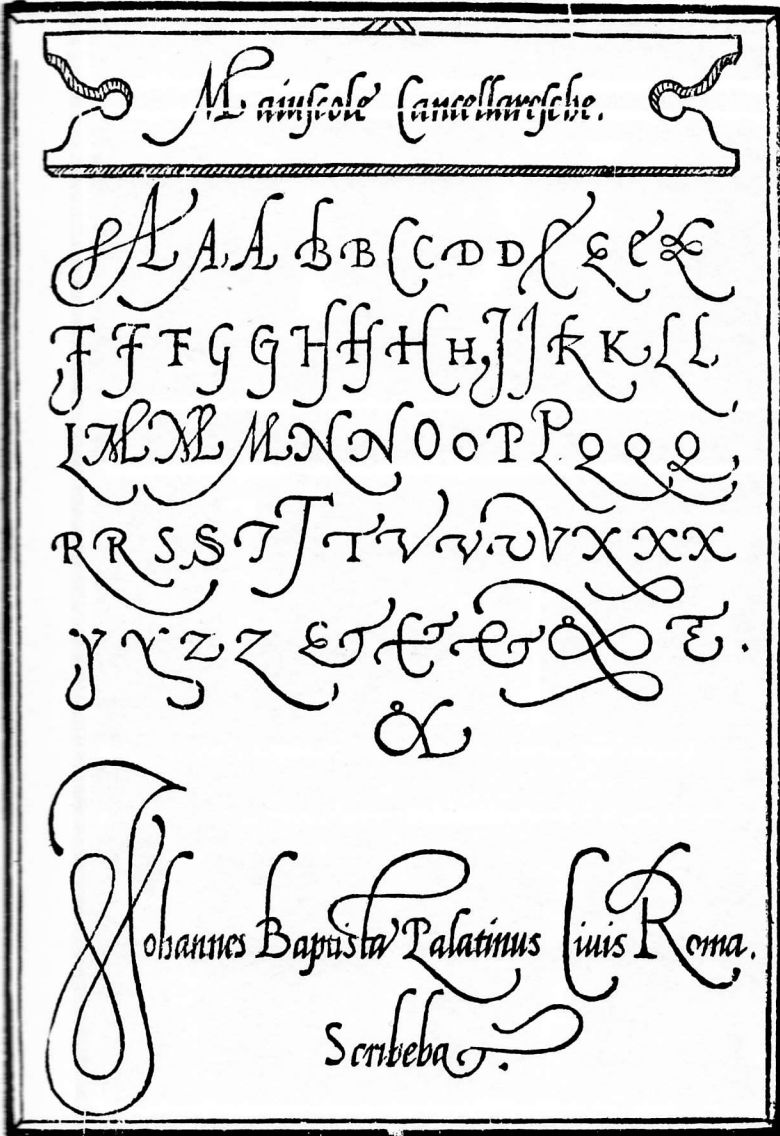 Maiuſcole Cancellareſche.
A A A B B C C D D E E E E
F F F G G H H H H J J K K L L
L M M M N N O O P P Q Q Q
R R S S T T T V V V V X X X
Y Y Z Z & & & & &.
&
Johannes Baptista Palatinus Ciuis Roma.
Scribebat.